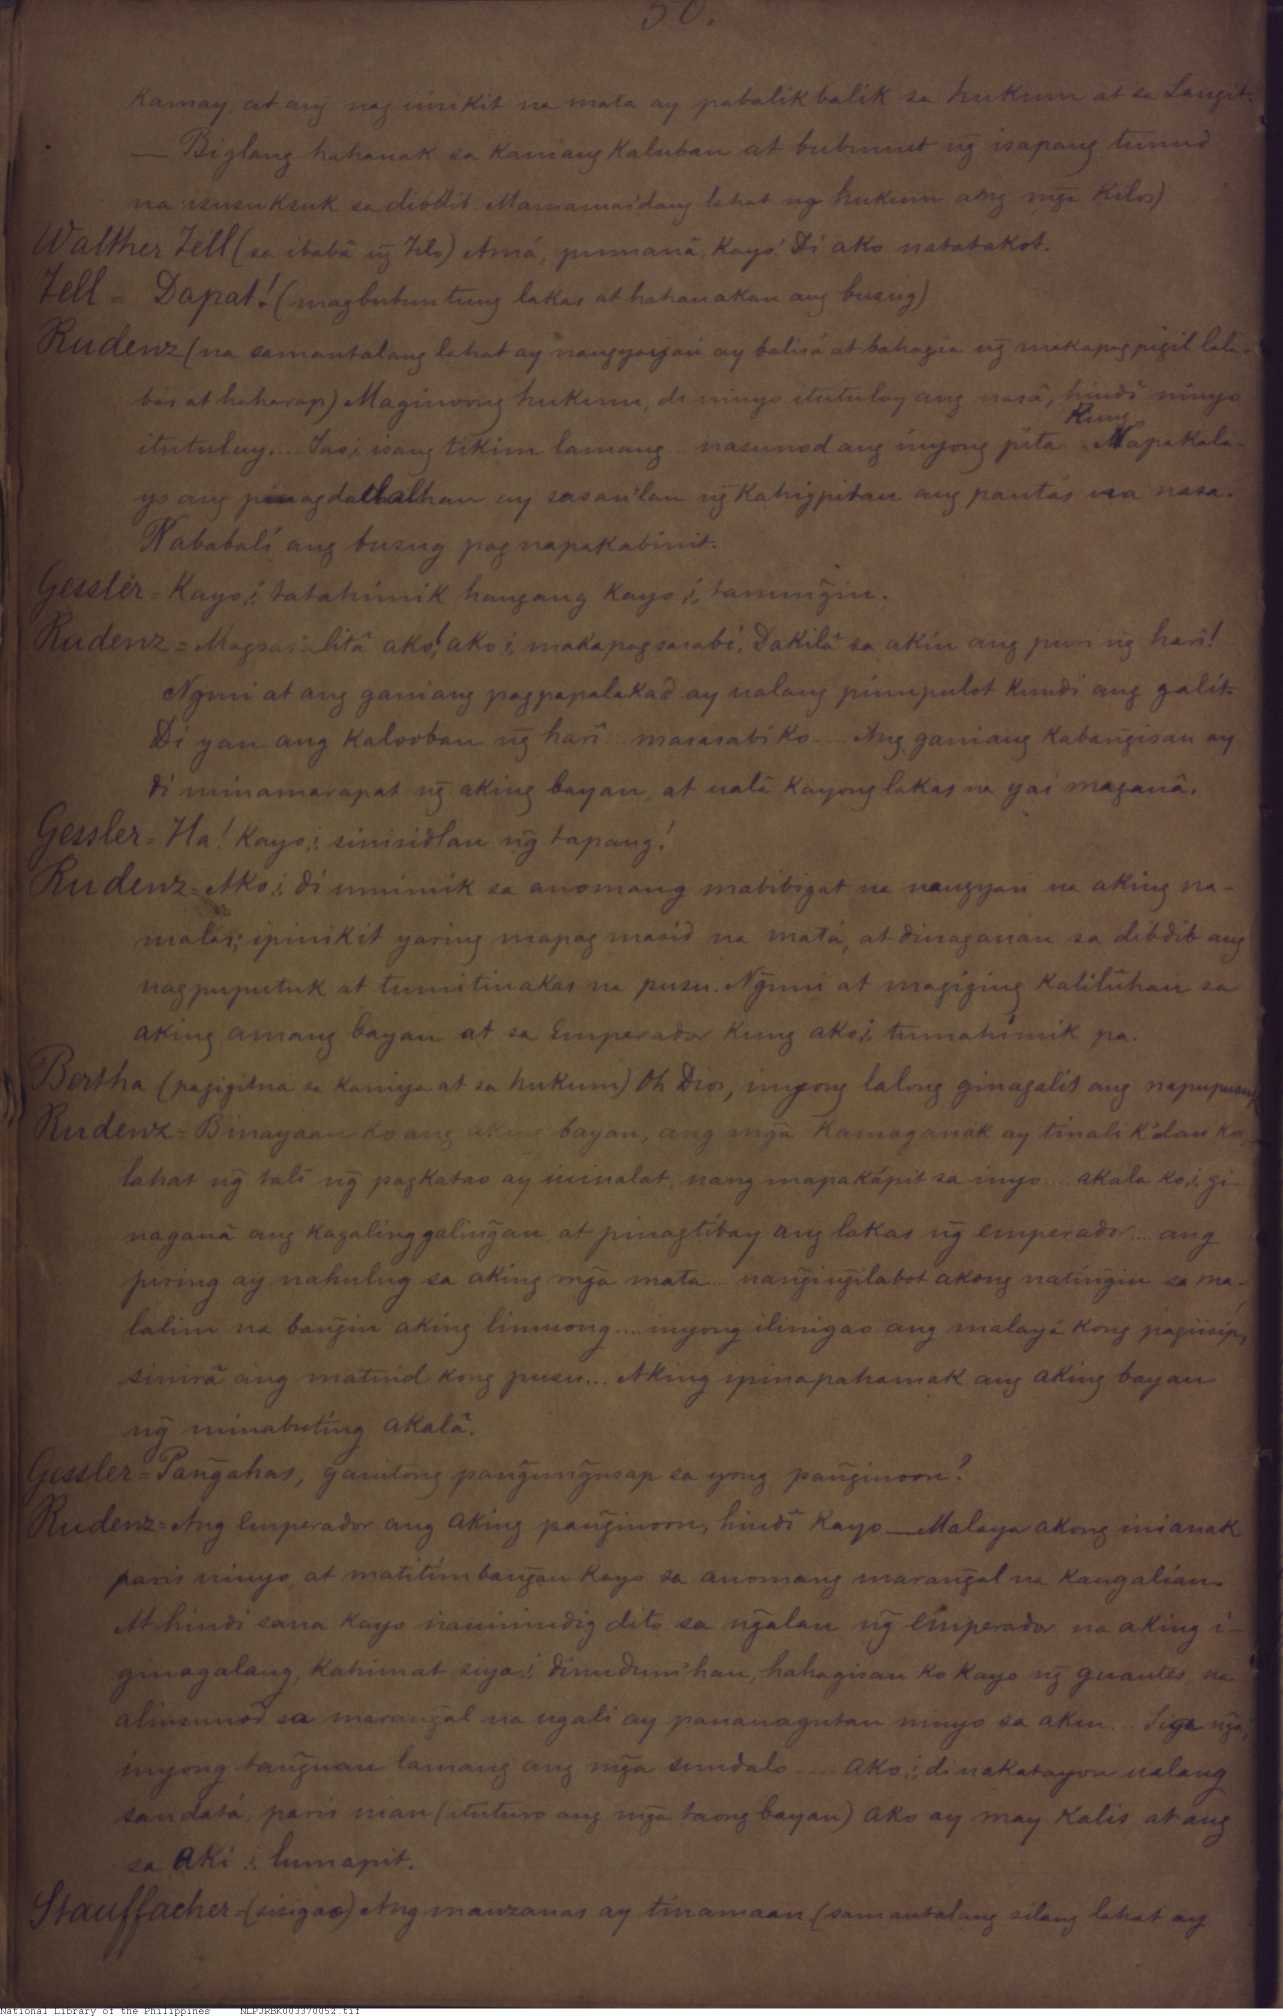 50.
kamay, at ang nag iinikit na mata ay pabalik balik sa hukum at sa Langit.
— Biglang hahanak sa kaniang kaluban at bubunut ng̃ isapang tunud
na isusuksuk sa dibdib. Mamamasdang lahat ng hukum ang mg̃a kilos)
Walther Tell (sa ibabâ ng̃ Tilo) Amá, pumanâ, kayo! Di ako natatakot.
Tell = Dapat! (magbubuntung lakas at hahanakan ang busug)
Rudenz (na samantalang lahat ay nangyayari ay balisá at bahagia ng̃ makapagpigil lala-
bas at haharap) Maginoong hukum, di ninyo itutuloy ang nasâ, hindî ninyo
itutuluy... Iao,i, isang tikim lamang.. nasunod ang inyong pita.. Kung Napakala-
yo ang pinagdadalhan ay sasan'lan ng̃ kahigpitan ang pantás na nasa.
Nababalì ang busug pag napakabinit.
Gessler = Kayo,i, tatahimik hangang kayo,i, tanung̃in.
Rudenz = Magsasalitâ ako! ako,i, makapagsasabi. Dakilâ sa akin ang puri ng̃ hari!
Ng̃uni at ang ganiang pagpapalakad ay ualang pinupulot kundi ang galit.
Di yan ang kalooban ng̃ harî masasabi ko.... Ang ganiang kabang̃isan ay
di minamarapat ng̃ aking bayan, at ualâ kayong lakas na yai maganâ.
Gessler = Ha! kayo,i, sinisidlan ng̃ tapang!
Rudenz = Ako,i, di umimik sa anomang mabibigat na nangyari na aking na-
malas; ipinikit yaring mapag masid na matá, at dinaganan sa dibdib ang
nagpuputuk at tumitinakas na pusu. Ng̃uni at magiging kaliluhan sa
aking amang bayan at sa Emperador kung ako,i, tumahimik pa.
Bertha (pagigitna sa kaniya at sa hukum) Oh Dios, inyong lalong ginagalit ang napupusung
Rudenz = Binayaan ko ang aking bayan, ang mg̃a kamaganak ay tinalik'dan ko,
lahat ng̃ tali ng̃ pagkatao ay iniualat, nang mapakápit sa inyo.... akala ko,i, gi-
naganâ ang kagalinggaling̃an at pinagtibay ang lakas ng̃ emperador... ang
piring ay nahulug sa aking mg̃a mata... nang̃ing̃ilabot akong natíng̃in sa ma-
lalim na bang̃in aking linusong.... inyong ilinigao ang malayá kong pagiisip,
sinirâ ang matuid kong pusu... Aking ipinapahamak ang aking bayan
ng̃ minabuting akalâ.
Gessler = Pang̃ahas, ganitong pang̃ung̃usap sa yong pang̃inoon?
Rudenz = Ang Emperador ang aking pang̃inoon, hindî kayo — Malaya akong inianak
paris ninyo, at matitimbang̃an kayo sa anomang marang̃al na kaugalian.
At hindi sana kayo naninindig dito sa ng̃alan ng̃ Emperador na aking i-
ginagalang, kahimat siya,i, dinudum'han, hahagisan ko kayo ng̃ guantes, na
alinsunod sa marang̃al na ugali ay pananagutan ninyo sa akin... Siga ng̃a,
inyong tang̃uan lamang ang mg̃a sundalo.... ako,i, di nakatayon ualang
sandatá, paris nian (ituturo ang mg̃a taong bayan) ako ay may kalis at ang
sa aki,i, lumapit.
Stauffacher = (sisigao) Ang manzanas ay tinamaan (samantalang silang lahat ay
National Library of the Philippines NLPJRBK003370052.tif